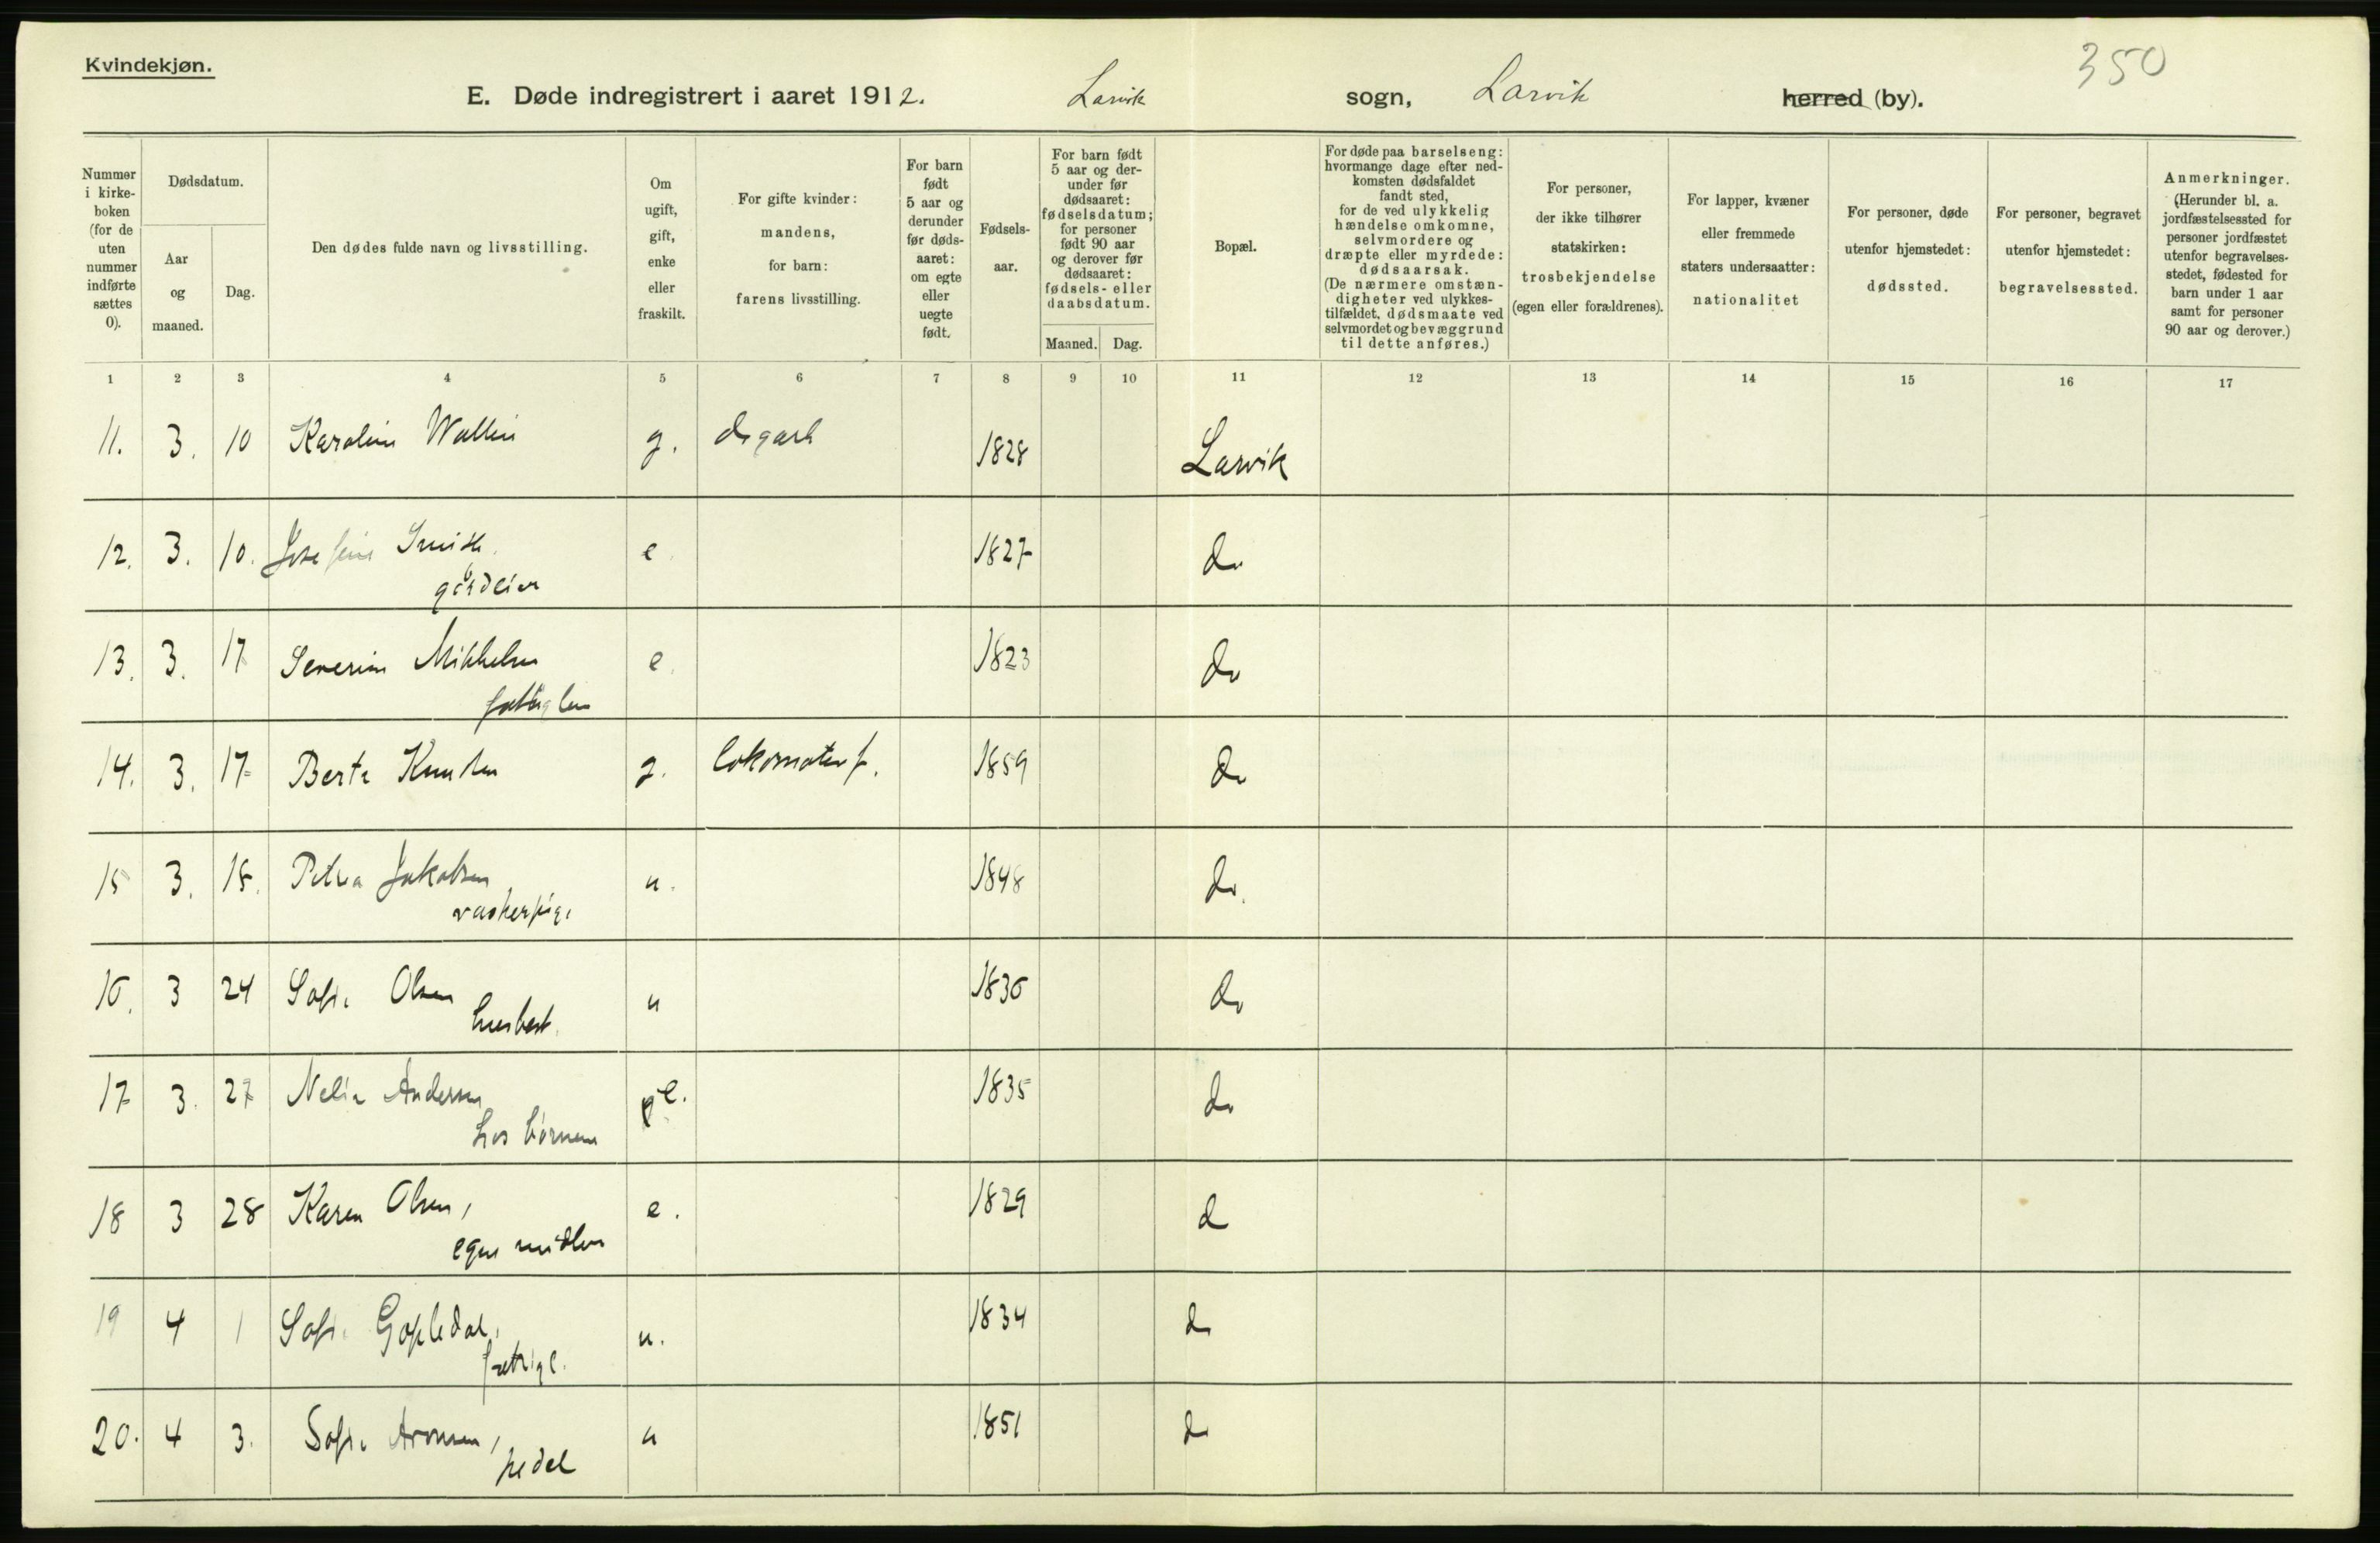 Kvindekjøn.
350
E. Døde indregistrert i aaret 1912. Larvik sogn, Larvik herred (by).
Nummer i kirke-boken (for de uten nummer indførte sættes 0).
Dødsdatum.
Aar og maaned.
Dag.
Den dødes fulde navn og livsstilling.
Om ugift, gift, enke eller fraskilt.
For gifte kvinder: mandens, for barn: farens livsstilling.
For barn født 5 aar og derunder før døds-aaret: om egte eller uegte født.
Fødsels-aar.
For barn født 5 aar og der-under før dødsaaret: fødselsdatum; for personer født 90 aar og derover før dødsaaret: fødsels- eller daabsdatum.
Maaned. Dag.
Bopæl.
For døde paa barselseng: hvormange dage efter ned-komsten dødsfaldet fandt sted, for de ved ulykkelig hændelse omkomne, selvmordere og dræpte eller myrdede: dødsaarsak. (De nærmere omstæn-digheter ved ulykkes-tilfældet, dødsmaate ved selvmordet og bevæggrund til dette anføres.)
For personer, der ikke tilhører statskirken: trosbekjendelse (egen eller forældrenes).
For lapper, kvæner eller fremmede staters undersaatter: nationalitet
For personer, døde utenfor hjemstedet: dødssted.
For personer, begravet utenfor hjemstedet: begravelsessted.
Anmerkninger. (Herunder bl. a. jordfæstelsessted for personer jordfæstet utenfor begravelses-stedet, fødested for barn under 1 aar samt for personer 90 aar og derover.)
1 2 3 4 5 6 7 8 9 10 11 12 13 14 15 16 17
11. 3. 10 Karoline Wallin g. 1828 Larvik
12. 3. 10. Josefine Smith e 1827 do
gårdeier
13. 3. 17 Severine Mikkelsen e. 1823 do
14. 3. 17 Berte Knudsen g. lokomotivf. 1859 do
15 3. 18. Petra Jakobsen u. 1848 do.
vaskerpige
16. 3 24 Sofie Olsen u 1836 do
husbest.
17 3. 27 Nelia Andersen e. 1835 do
hos börnene
18 3 28 Karen Olsen, e. 1829 d
egne midler
19 4 1 Sofie Gopledal, u. 1834 do
20. 4 3. Sofie Aronsen, u 1851 do